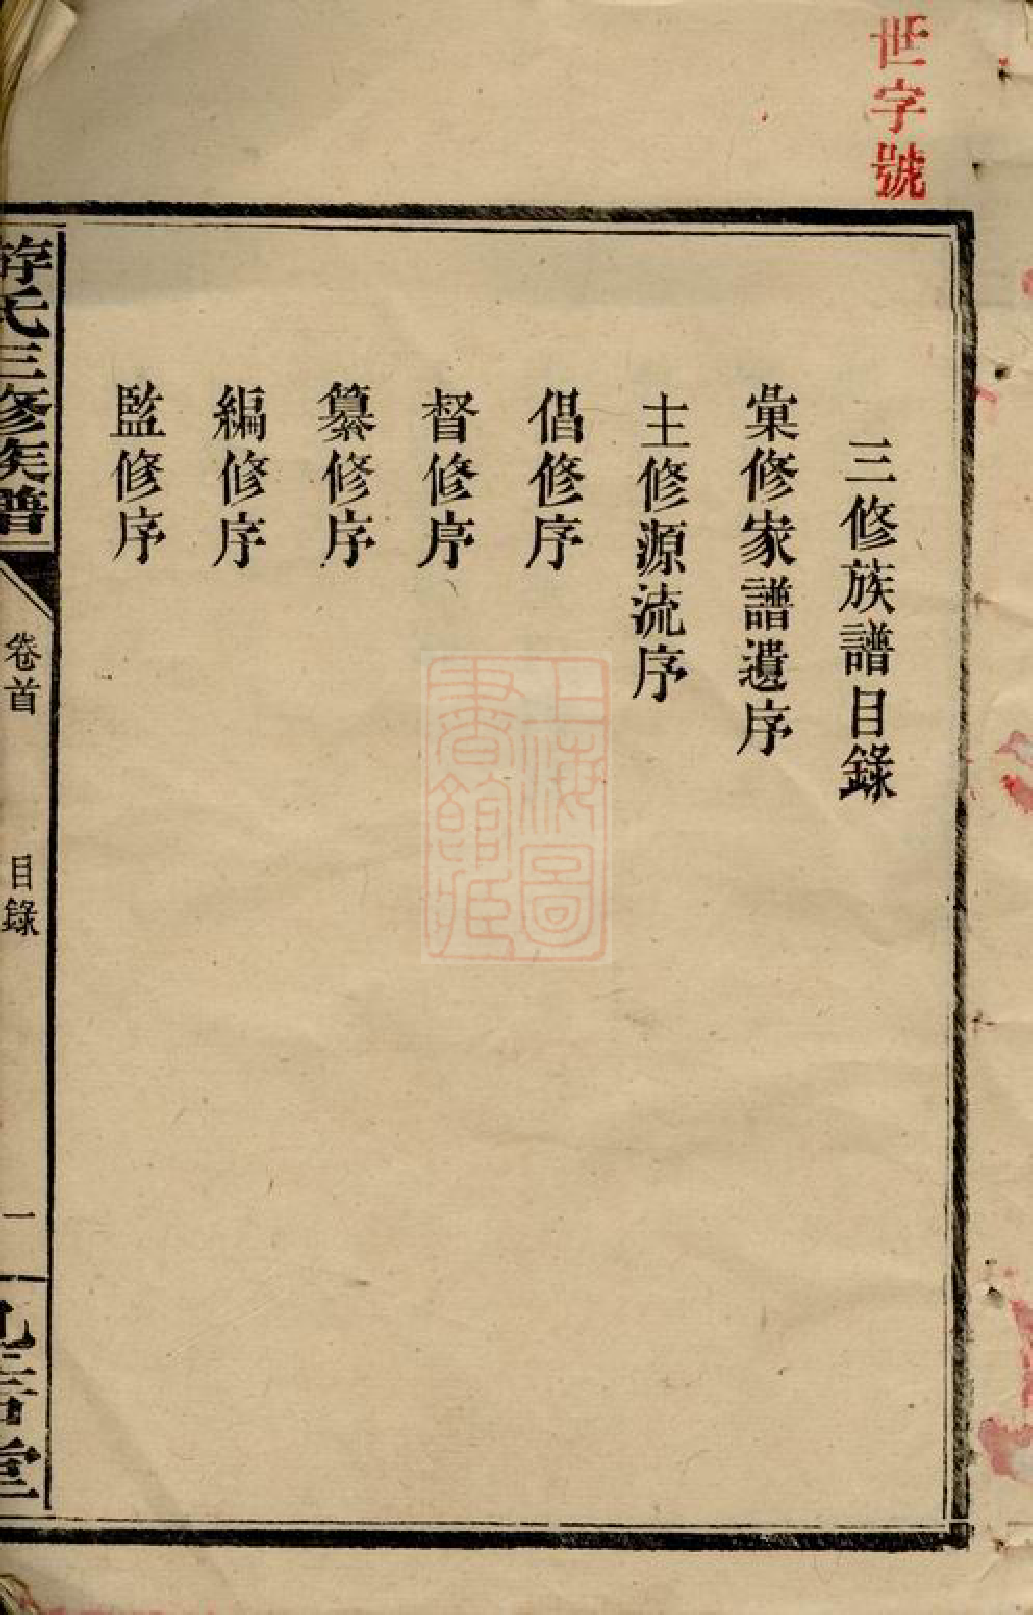 世字號
三修族譜目錄
彙修家譜遺序
主修源流序
倡修序
督修序
纂修序
編修序
監修序
氏三修族譜
卷首
目錄
一
堂
上海圖
書館藏